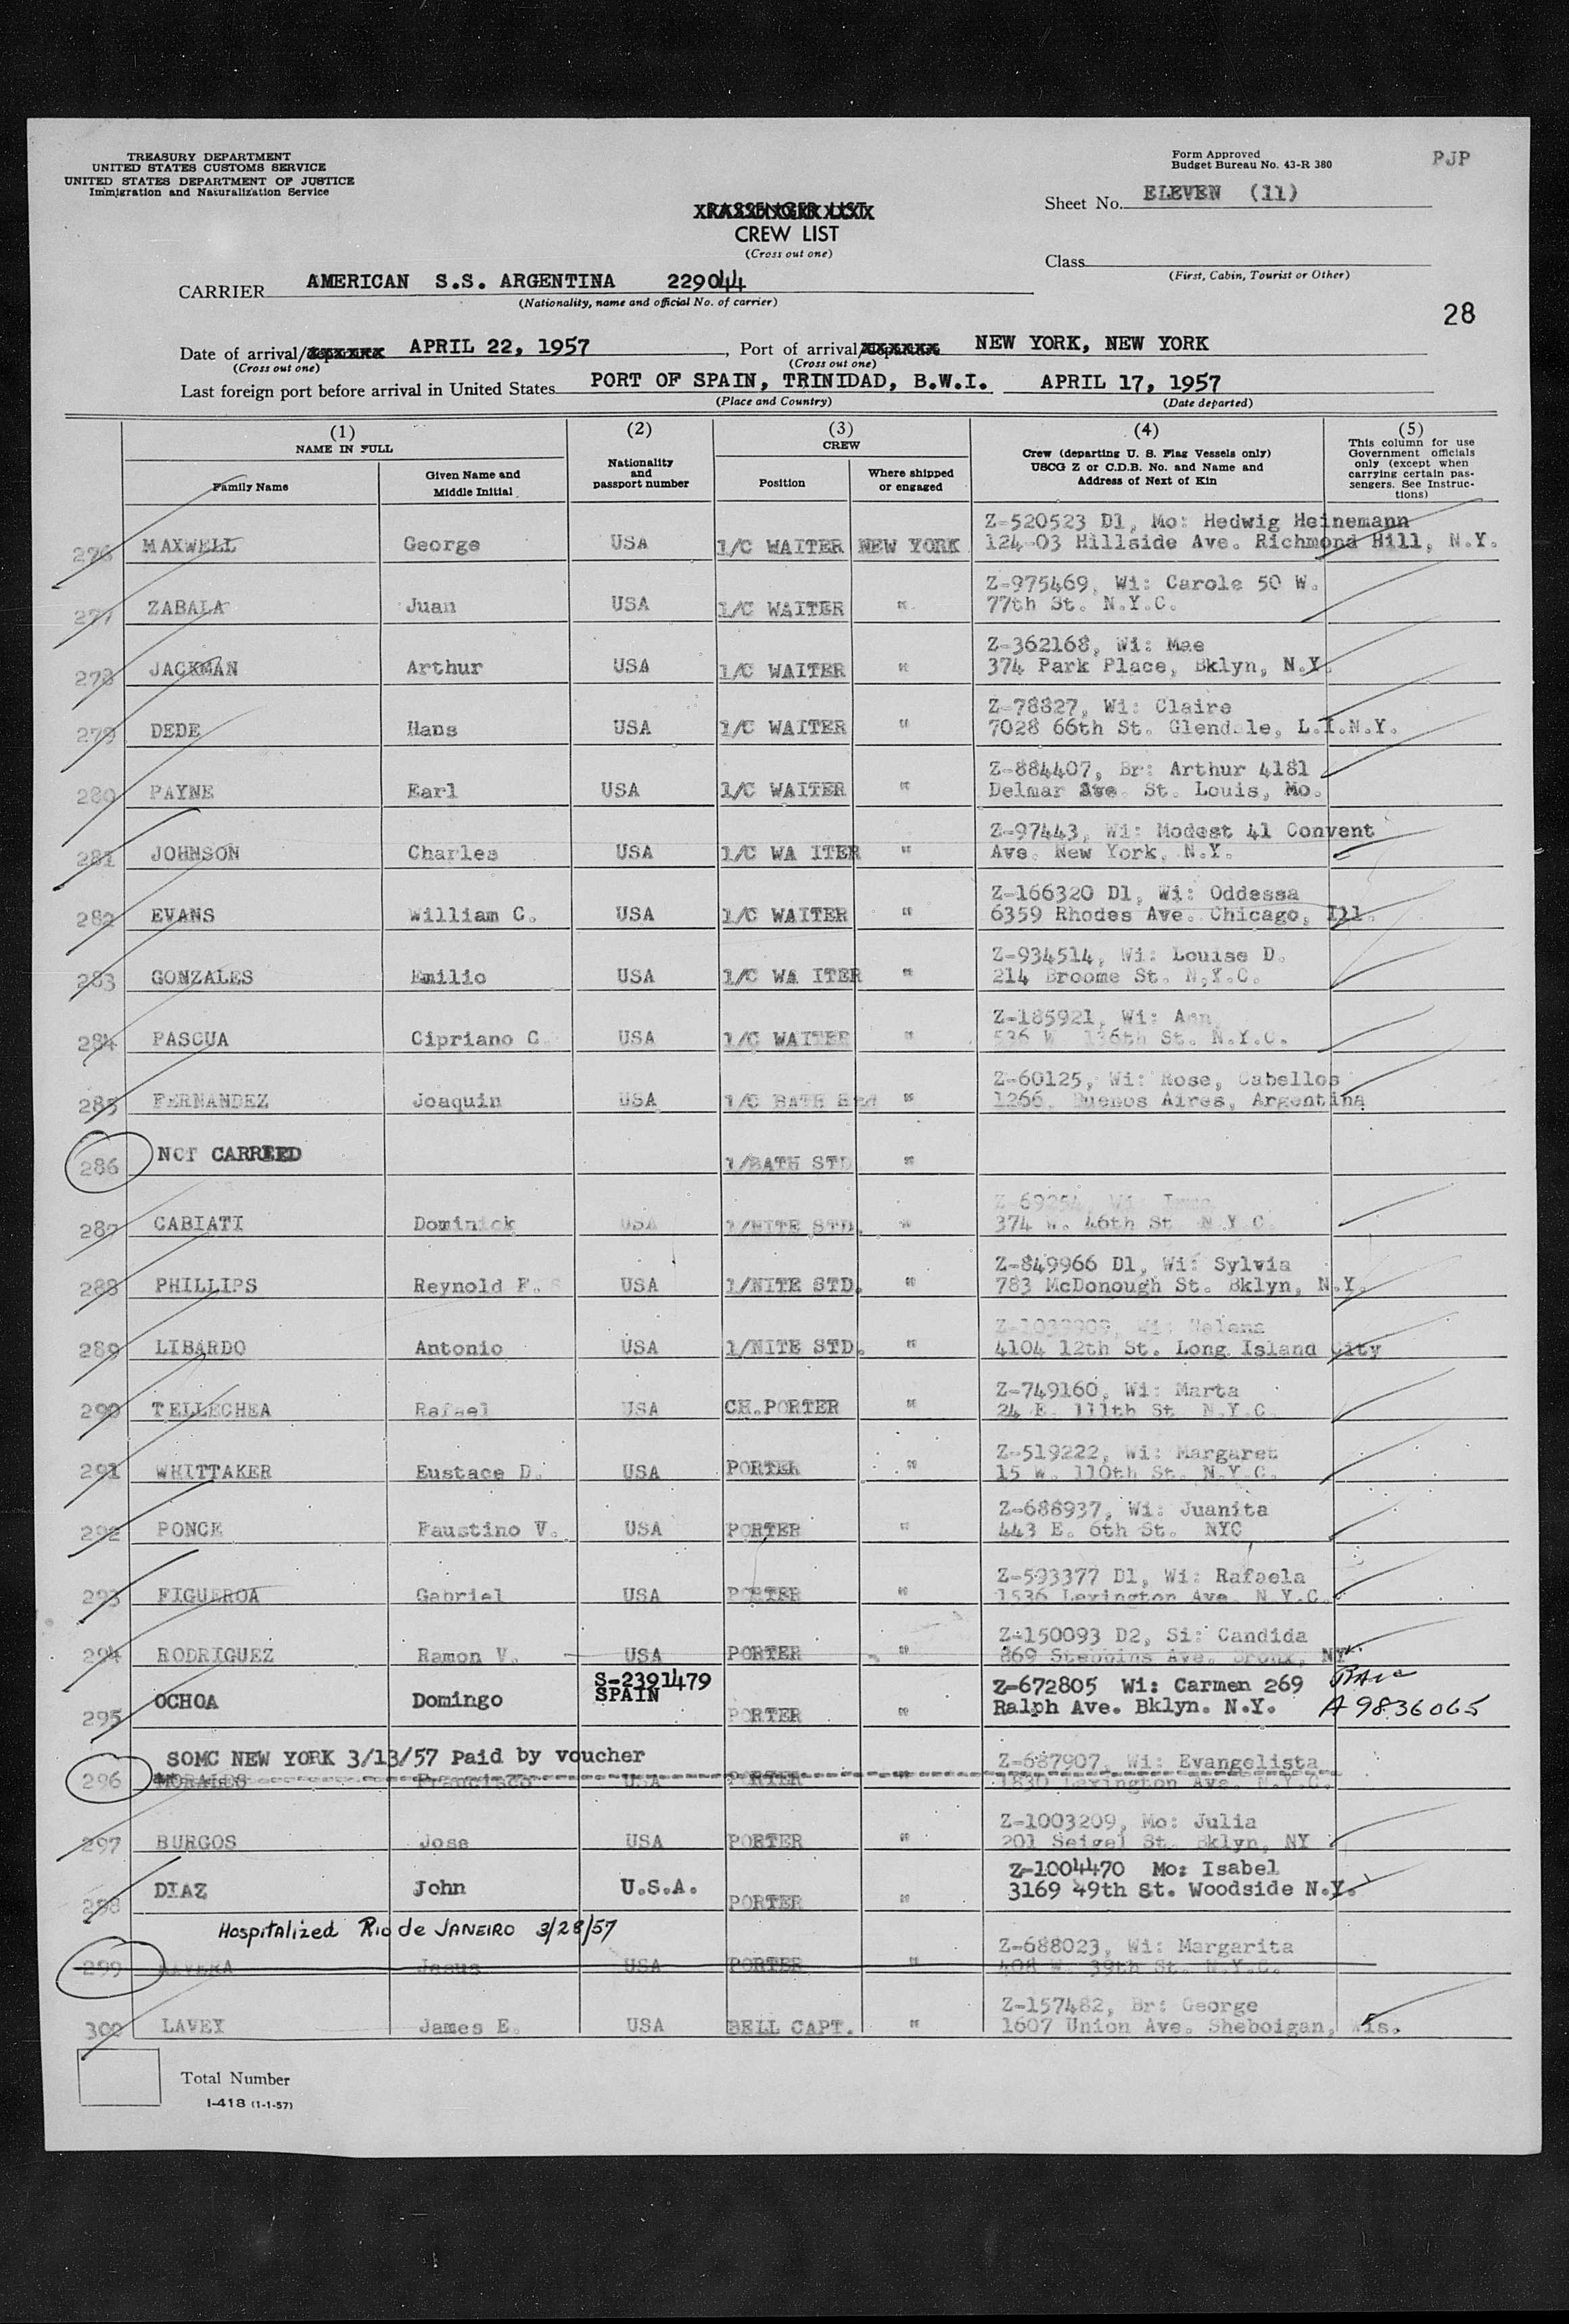 TREASURY DEPARTMENT
UNITED STATES CUSTOMS SERVICE
UNITED STATES DEPARTMENT OF JUSTICE
Immigration and Naturalization Service
Form Approved
Budget Bureau No. 43-R 380
PJP
PASSENGER LIST
CREW LIST
(Cross out one)
Sheet No. ELEVEN (11)
Class
(First, Cabin, Tourist or Other)
CARRIER AMERICAN S.S. ARGENTINA 229044
(Nationality, name and official No. of carrier)
28
Date of arrival/departure APRIL 22, 1957, Port of arrival/departure NEW YORK, NEW YORK
(Cross out one) (Cross out one)
Last foreign port before arrival in United States PORT OF SPAIN, TRINIDAD, B.W.I. APRIL 17, 1957
(Place and Country) (Date departed)
(1) (2) (3) (4) (5)
NAME IN FULL
Family Name
Given Name and Middle Initial
Nationality and passport number
CREW
Position
Where shipped or engaged
Crew (departing U. S. Flag Vessels only)
USCG Z or C.D.B. No. and Name and
Address of Next of Kin
This column for use
Government officials
only (except when
carrying certain pas-
sengers. See Instruc-
tions)
Z-520523 D1, Mo: Hedwig Heinemann
276 MAXWELL George USA 1/C WAITER NEW YORK 124-03 Hillside Ave. Richmond Hill, N.Y.
Z-975469, Wi: Carole 50 W.
277 ZABALA Juan USA 1/C WAITER " 77th St. N.Y.C.
Z-362168, Wi: Mae
278 JACKMAN Arthur USA 1/C WAITER " 374 Park Place, Bklyn, N.Y.
Z-78827, Wi: Claire
279 DEDE Hans USA 1/C WAITER " 7028 66th St. Glendale, L.I.N.Y.
Z-884407, Br: Arthur 4181
280 PAYNE Earl USA 1/C WAITER " Delmar Ave. St. Louis, Mo.
Z-97443, Wi: Modest 41 Convent
281 JOHNSON Charles USA 1/C WA ITER " Ave. New York, N.Y.
Z-166320 D1, Wi: Oddessa
282 EVANS William C. USA 1/C WAITER " 6359 Rhodes Ave. Chicago, Ill.
Z-934514, Wi: Louise D.
283 GONZALES Emilio USA 1/C WA ITER " 214 Broome St. N.Y.C.
Z-185921, Wi: Ann
284 PASCUA Cipriano C. USA 1/C WAITER " 536 W 136th St. N.Y.C.
Z-60125, Wi: Rose, Cabellos
285 FERNANDEZ Joaquin USA 1/C BATH Std " 1266, Buenos Aires, Argentina
286 NOT CARRIED 1/BATH STD "
287 CABIATI Dominick USA 1/NITE STD. " 374 W. 46th St N.Y.C.
Z-849966 D1, Wi: Sylvia
288 PHILLIPS Reynold F. USA 1/NITE STD. " 783 McDonough St. Bklyn, N.Y.
Wi: Helena
289 LIBARDO Antonio USA 1/NITE STD. " 4104 12th St. Long Island City
Z-749160, Wi: Marta
290 TELLECHEA Rafael USA CH.PORTER " 24 E. 111th St N.Y.C.
Z-519222, Wi: Margaret
291 WHITTAKER Eustace D. USA PORTER " 15 W. 110th St. N.Y.C.
Z-688937, Wi: Juanita
292 PONCE Faustino V. USA PORTER " 443 E. 6th St. NYC
Z-593377 D1, Wi: Rafaela
293 FIGUEROA Gabriel USA PORTER " 1536 Lexington Ave. N.Y.C.
Z-150093 D2, Si: Candida
294 RODRIGUEZ Ramon V. USA PORTER " 869 Stebbins Ave. Bronx, NY
S-2391479 Z-672805 Wi: Carmen 269
295 OCHOA Domingo SPAIN PORTER " Ralph Ave. Bklyn. N.Y. A 9836065
SOMC NEW YORK 3/13/57 Paid by voucher Z-687907, Wi: Evangelista
296 MORALES Francisco USA PORTER " 1830 Lexington Ave. N.Y.C.
Z-1003209, Mo: Julia
297 BURGOS Jose USA PORTER " 201 Seigel St. Bklyn, NY
Z-1004470 Mo: Isabel
298 DIAZ John U.S.A. PORTER " 3169 49th St. Woodside N.Y.
Hospitalized Rio de JANEIRO 3/28/57
Z-688023, Wi: Margarita
299 RIVERA Jesus USA PORTER " 408 W. 39th St. N.Y.C.
Z-157482, Br: George
300 LAVEY James E. USA BELL CAPT. " 1607 Union Ave. Sheboigan, Wis.
Total Number
I-418 (1-1-57)